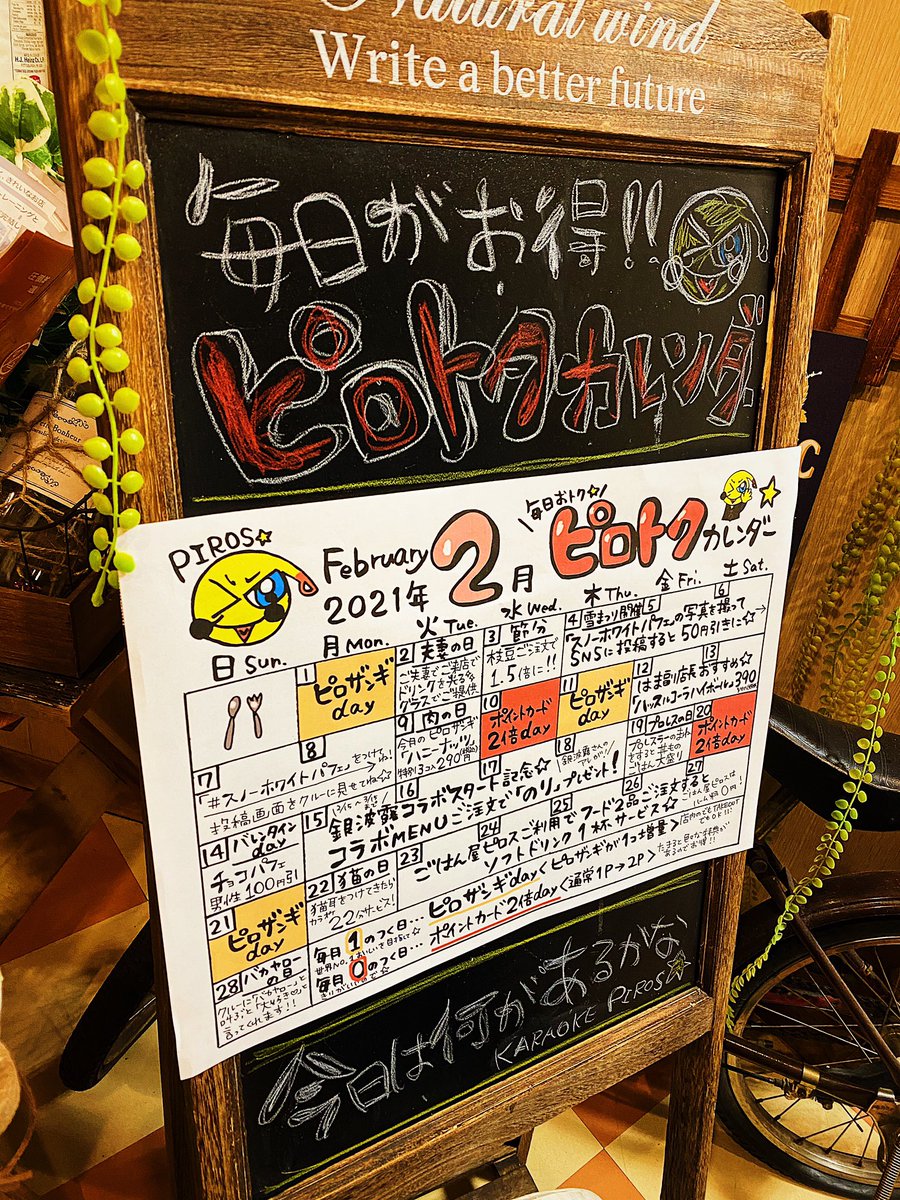 Natural wind
Write a better future
毎日がお得!!
ピロトクカレンダー
PIROS☆
February
2021年
2月
毎日おトク☆
ピロトクカレンダー
日 Sun.
月 Mon.
火 Tue.
水 Wed.
木 Thu.
金 Fri.
土 Sat.
1
ピロザンギday
2 夫妻の日
ご夫妻でご来店で
ドリンクを光る
グラスでご提供
3 節分
枝豆ご注文で
1.5倍に!!
4 雪まつり開催 5 6
「スノーホワイトパフェ」の写真を撮って
SNSに投稿すると50円引きに☆→
7 8
「#スノーホワイトパフェ」をつけてね!
投稿画面をクルーに見せてね☆
9 肉の日
今月のピロザンギ
「ハニーナッツ」
特別3コ入290円
10
ポイントカード
2倍day
11
ピロザンギday
12 13
「はま福」店長おすすめ☆
「ハッスルコーラハイボール」390
14 バレンタインday
チョコパフェ
男性100円引
15 16 17 18
銀波露コラボスタート記念☆
コラボMENUご注文で「のり」プレゼント!
19 プロレスの日
プロレスラーのまね
をすると丼もの
ごはん大盛り
20
ポイントカード
2倍day
21
ピロザンギday
22 猫の日
猫耳をつけてきたら
22分サービス!
23 24 25 26 27
ごはん屋ピロスご利用でフード2品ご注文すると
ソフトドリンク1杯サービス☆
ごはん屋ピロスは
ルーム料0円!
28 バカヤローの日
クルーに「バカヤロー」と
叫ぶと「大好き♡」と
言ってくれます!!
毎月1のつく日…ピロザンギday<ピロザンギが1コ増量>
毎月0のつく日…ポイントカード2倍day<通常1P→2P>
今日は何があるかな
KARAOKE PIROS☆